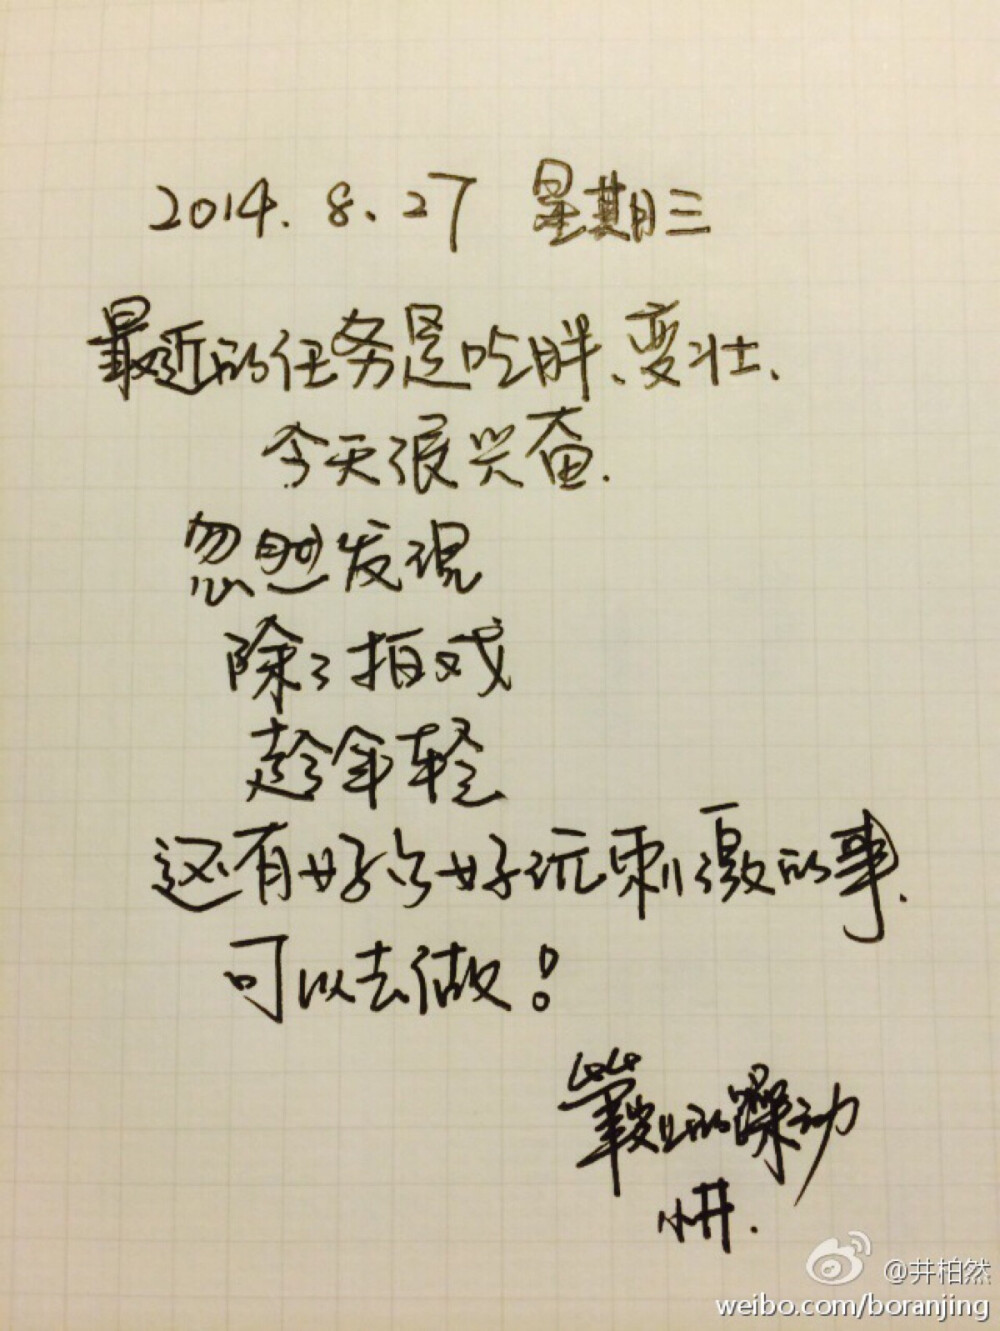 2014.8.27 星期三
最近的任务是吃胖、变壮.
今天很兴奋.
忽然发现
除了拍戏
趁年轻
还有好多好玩刺激的事.
可以去做!
的躁动
小井.
@井柏然
weibo.com/boranjing